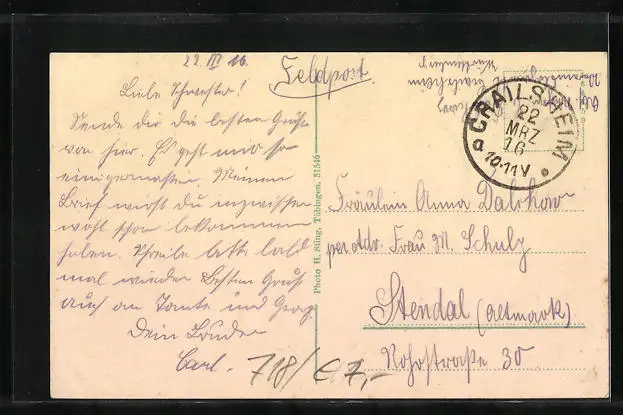 22 III 16.
Liebe Schwester!
Sende dir die besten Grüße
von hier. Es geht mir so
einigermasten. Meinen
Brief wirst du inzwischen
wohl schon bekommen
haben. Schreibe bitte bald
mal wieder Besten Gruß
auch an Tante und Georg.
Dein Bruder
Carl.
718/ € 7,-
Photo H. Sting, Tübingen, 51546
Feldpost.
Württemberg
Crailsheim
CRAILSHEIM
22
MRZ
16
10-11V
a
Fräulein Anna Dalchow
per Adr. Frau M. Schulz
Stendal (Altmark)
Rohrstraße 30.